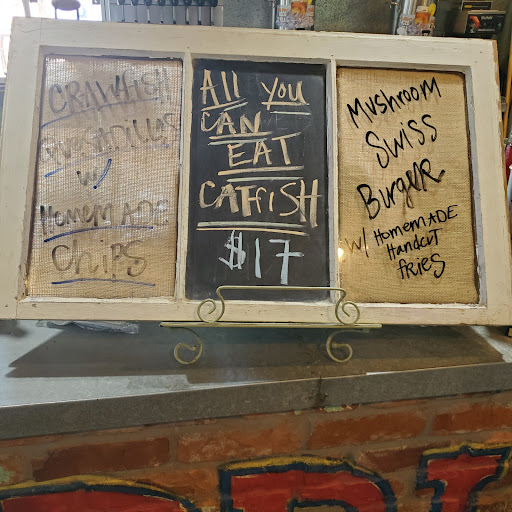 CRAWFISH
QUESADILLAS
w/
HOMEMADE
CHIPS
All YOU
CAN
EAT
CATFISH
$17
MUSHROOM
SWISS
BURGER
W/ HOMEMADE
HANDCUT
fRIES